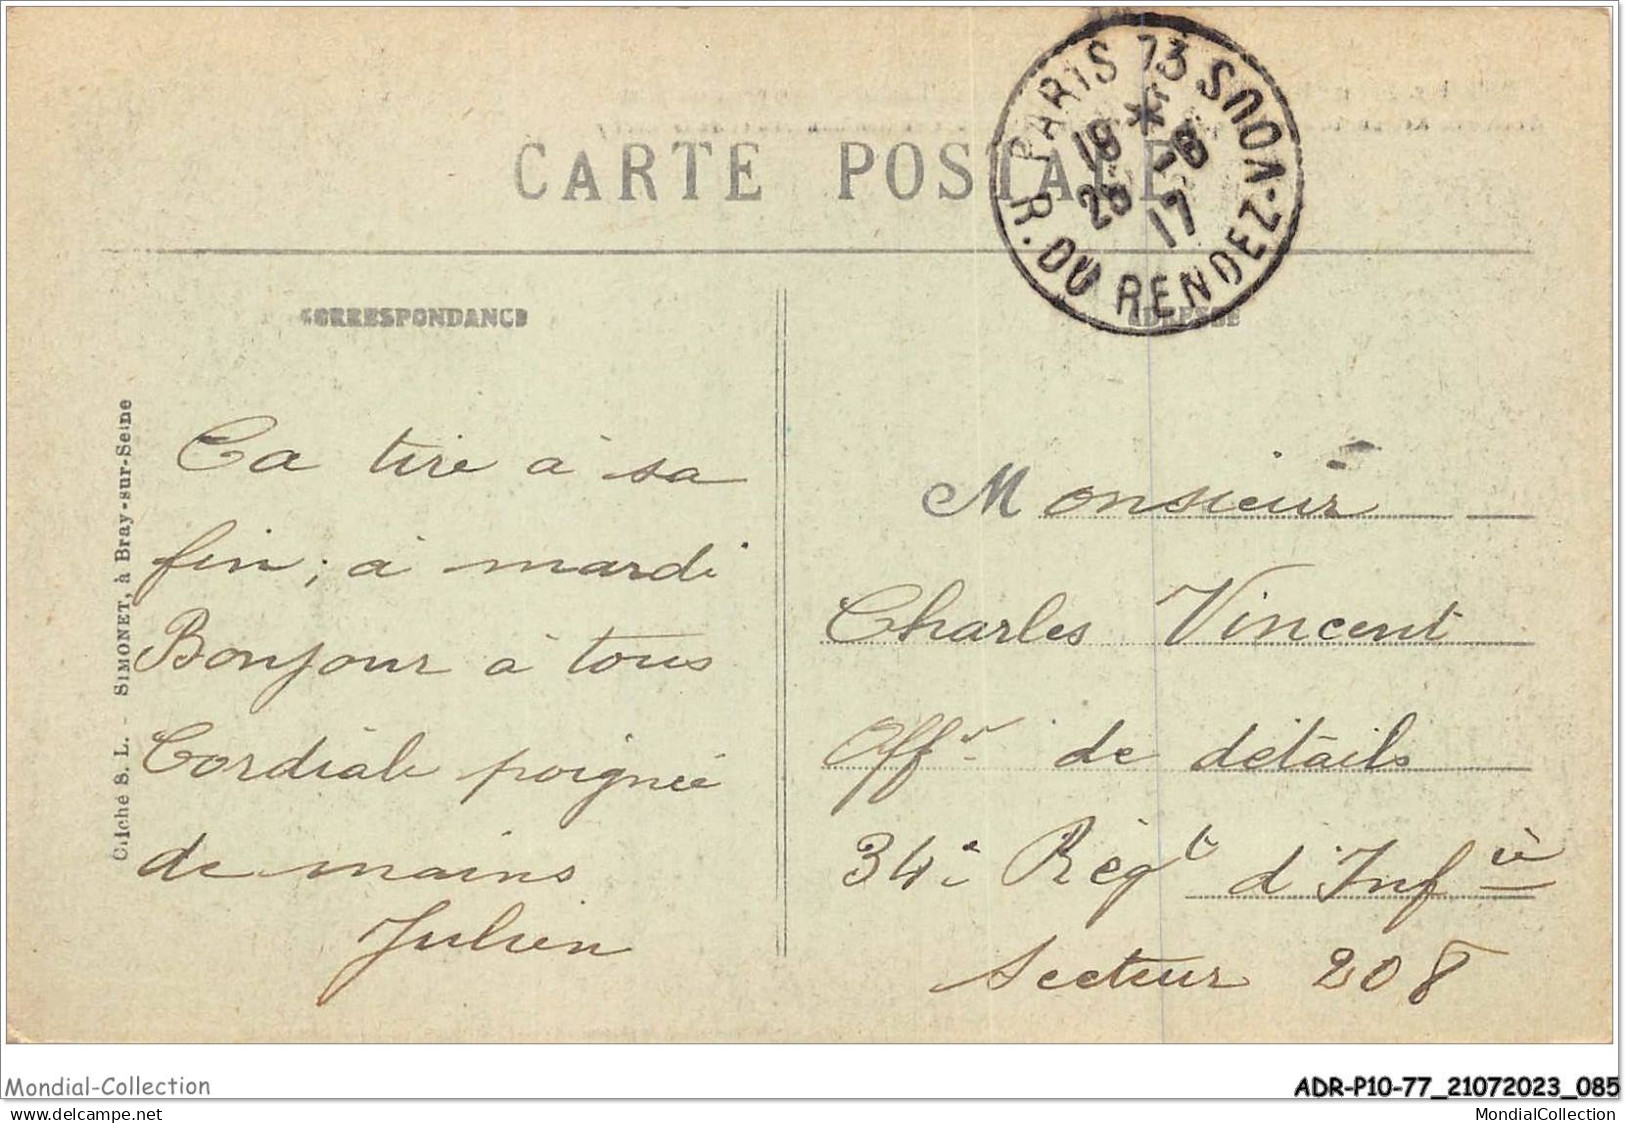 CARTE POSTALE
PARIS 73 R. DU RENDEZ-VOUS
*
17
CORRESPONDANCE
ADRESSE
Cliché S. L. - SIMONET, à Bray-sur-Seine
Ca tire à sa
fin ; à mardi
Bonjour à tous
Cordiale poignée
de mains
Julien
Monsieur
Charles Vincent
Offr de détails
34e Régt d'Infie
Secteur 208
Mondial-Collection
ADR-P10-77_21072023_085
www.delcampe.net
MondialCollection